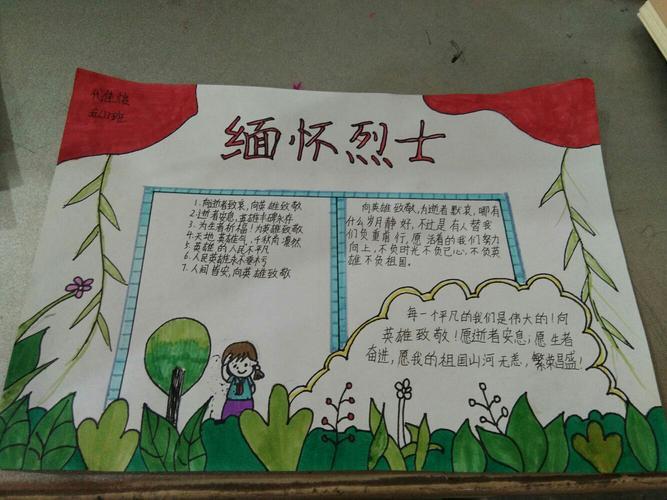 缅怀烈士
1.向逝者致哀，向英雄致敬
2.逝者安息，英雄丰碑永存
3.为生者祈福！为英雄致敬
4.天地英雄气，千秋尚凛然
5.英雄的人民不平凡
6.人民英雄永不垂朽
7.人间皆安，向英雄致敬
向英雄致敬，为逝者默哀，哪有
什么岁月静好，不过是有人替我
们负重前行，愿活着的我们努力
向上，不负时光不负己心，不负英
雄不负祖国。
每一个平凡的我们是伟大的！向
英雄致敬！愿逝者安息，愿生者
奋进，愿我的祖国山河无恙，繁荣昌盛！